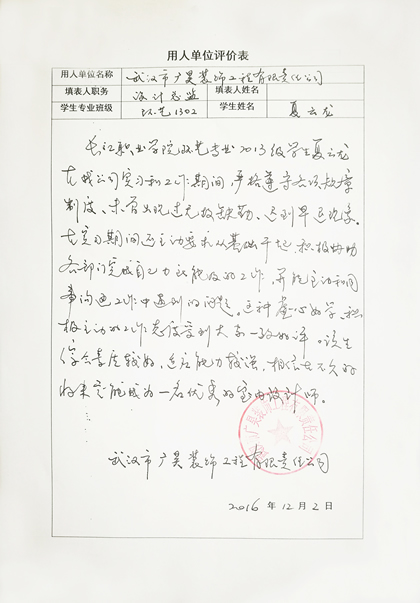 用人单位评价表
用人单位名称 武汉市广昊装饰工程有限责任公司
填表人职务 设计总监 填表人姓名
学生专业班级 环艺1302 学生姓名 夏云龙
长江职业学院环艺专业2013级学生夏云龙
在我公司实习和工作期间，严格遵守各项规章
制度、未曾出现过无故缺勤、迟到早退现象。
在实习期间还主动要求从基础干起，积极协助
各部门完成自己力所能及的工作，并能主动和同
事沟通工作中遇到的问题，这种虚心好学、积
极主动的工作态度受到大家一致好评。该生
综合素质较好，适应能力较强，相信在不久的
将来定能成为一名优秀的室内设计师。
武汉市广昊装饰工程有限责任公司
2016年12月2日